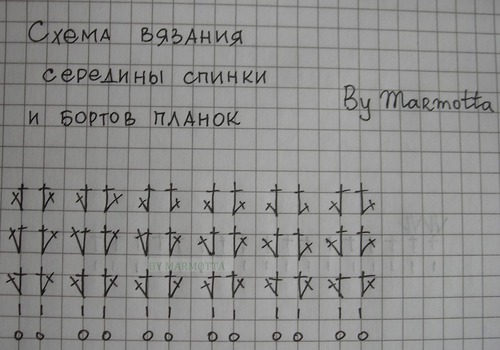 Схема вязания
середины спинки
By Marmotta
и бортов планок
BY MARMOTTA